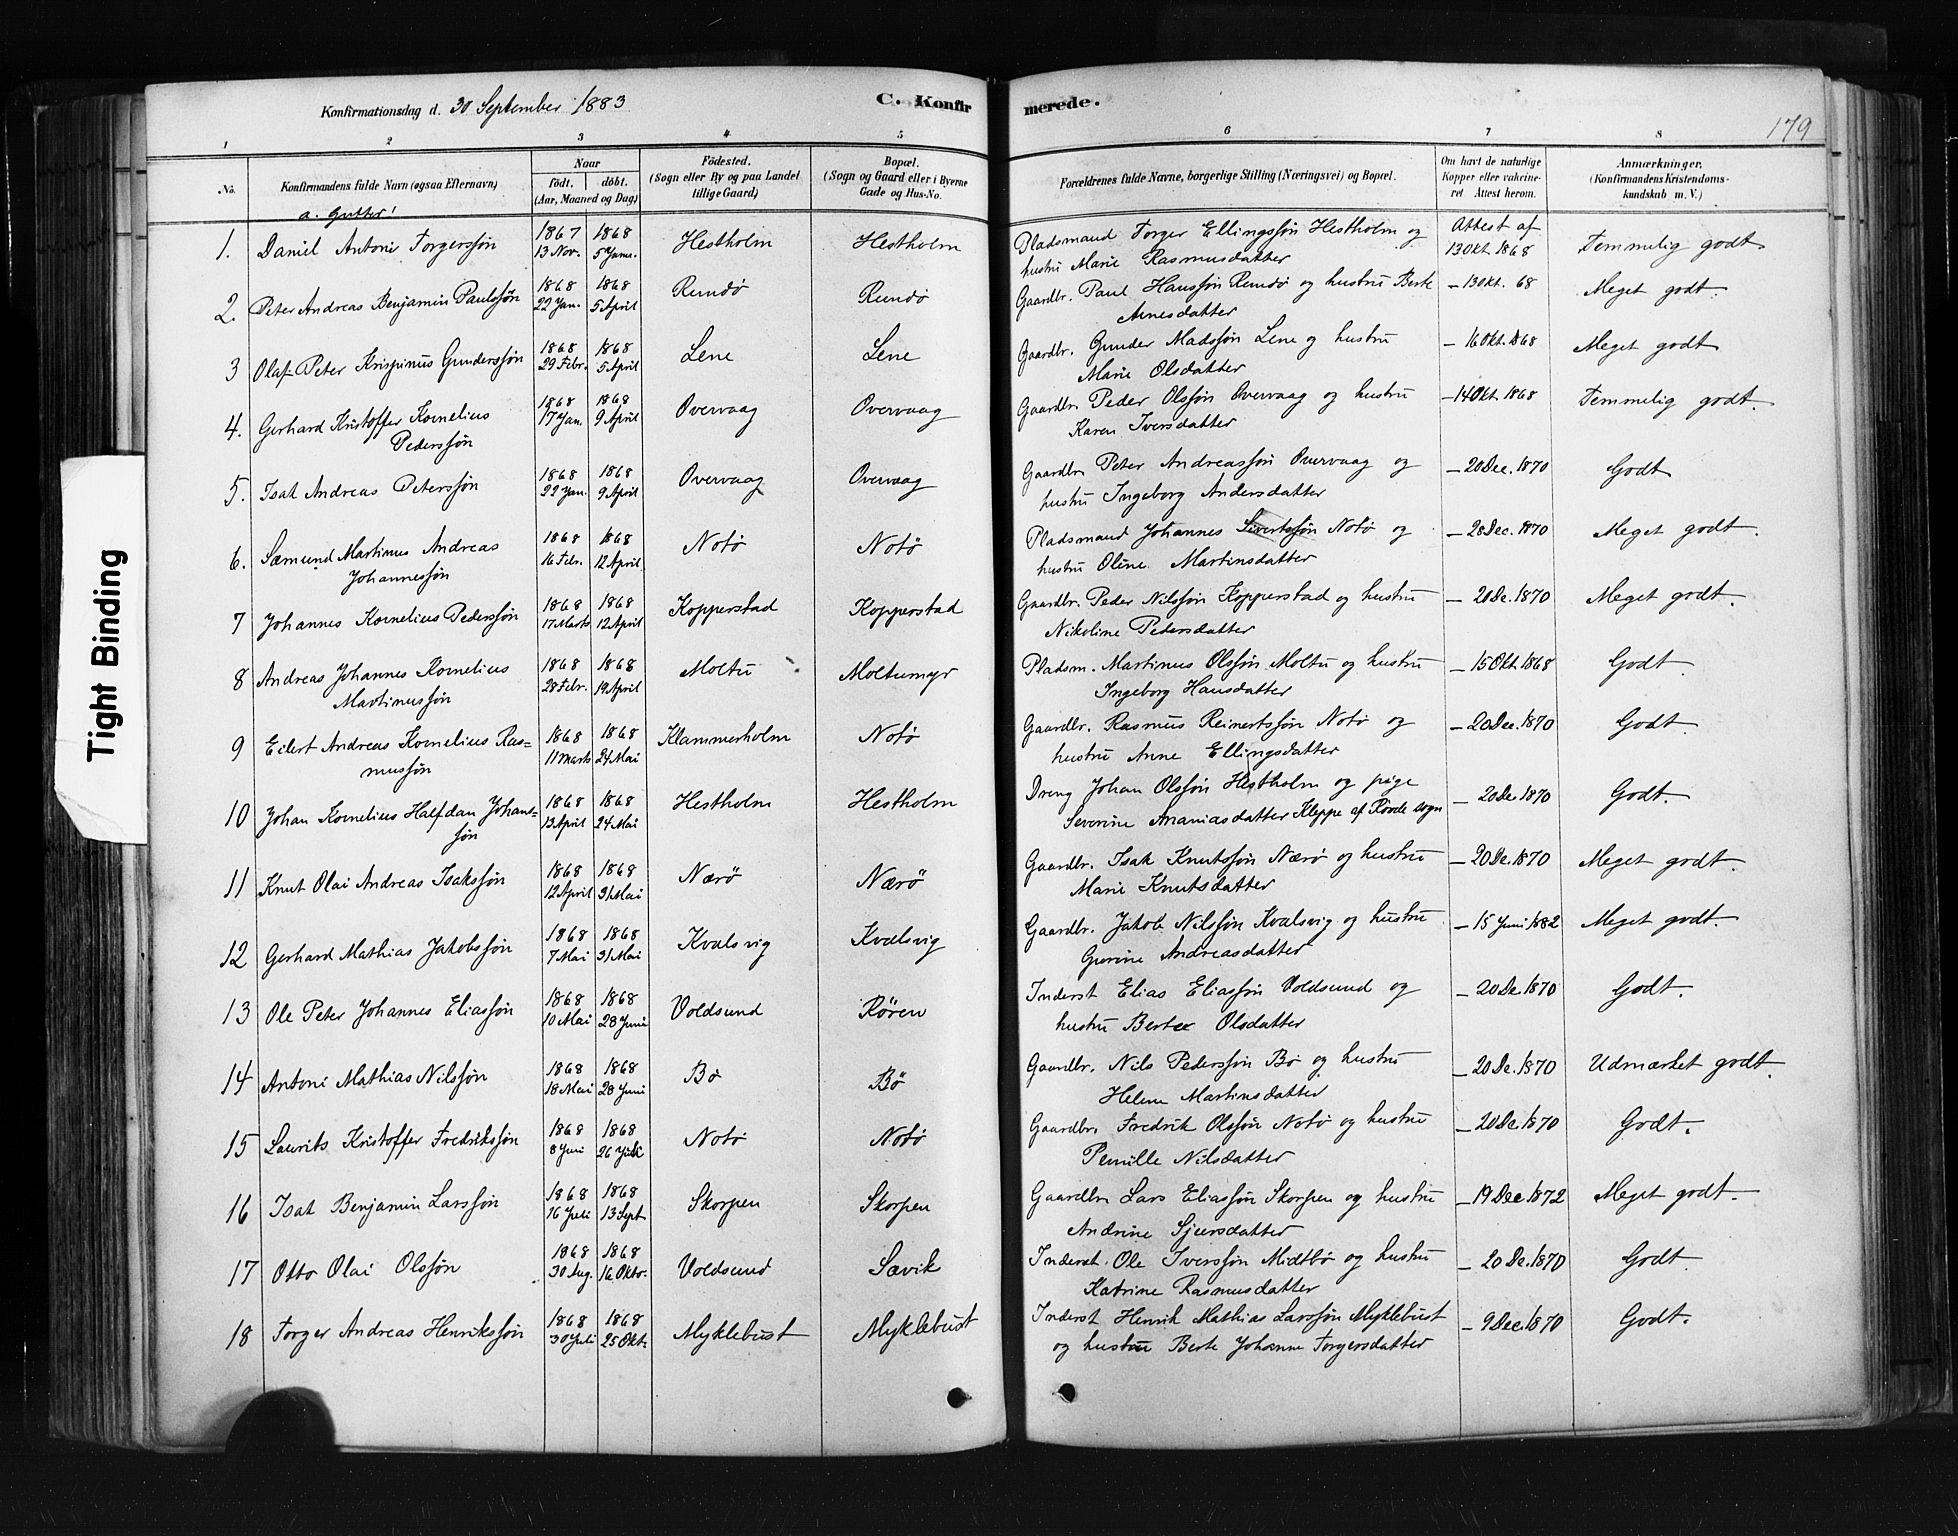 Konfirmationsdag d. 30 September 1883
C. Konfirmerede.
179
1 2 3 4 5 6 7 8
No.
Konfirmandens fulde Navn (ogsaa Efternavn)
Naar
födt. döbt.
(Aar, Maaned og Dag)
Födested.
(Sogn eller By og paa Landet
tillige Gaard)
Bopæl.
(Sogn og Gaard eller i Byerne
Gade og Hus-No.
Forældrenes fulde Navne, borgerlige Stilling (Næringsvei) og Bopæl.
Om havt de naturlige
Kopper eller vakcine-
ret Attest herom.
Anmærkninger,
(Konfirmandens Kristendoms-
kundskab m. V.)
a. Gutter!
1. Daniel Antoni Torgerssøn 1867 13 Nov. 1868 5 Janr. Hestholm Hestholm Pladsmand Torger Ellingssøn Hestholm og Attest af 13 Okt. 1868 Temmelig godt
hustru Marie Rasmusdatter
2. Peter Andreas Benjamin Paulssøn 1868 22 Jan. 1868 5 April Rundø Rundø Gaardbr. Paul Hanssøn Rundø og hustru Berte – 13 Okt. 68 Meget godt.
Arnesdatter
3 Olaf Peter Krispinus Gunderssøn 1868 29 Febr. 1868 5 April Lene Lene Gaardbr. Gunder Madssøn Lene og hustru – 16 Okt. 1868 Meget godt
Marie Olsdatter
4. Gerhard Kristoffer Kornelius 1868 17 Jan. 1868 9 April Overvaag Overvaag Gaardbr. Peder Olssøn Overvaag og hustru – 14 Okt. 1868 Temmelig godt.
Pederssøn Karen Iversdatter
5. Isak Andreas Peterssøn 1868 22 Jan. 1868 9 April Overvaag Overvaag Gaardbr. Peter Andreassøn Overvaag og – 20 Dec. 1870 Godt
hustru Ingeborg Andersdatter
6. Sæmund Martinus Andreas 1868 16 Febr. 1868 12 April Notø Notø Pladsmand Johannes Sivertssøn Notø og – 28 Dec. 1870 Meget godt.
Johannessøn hustru Oline Martinsdatter
7 Johannes Kornelius Pederssøn 1868 17 Marts 1868 12 April Kopperstad Kopperstad Gaardbr. Peder Nilssøn Kopperstad og hustru – 20 De. 1870 Meget godt.
Nikoline Pedersdatter
8 Andreas Johannes Kornelius 1868 28 Febr. 1868 19 April Moltu Moltumyr Pladsm. Martinus Olssøn Moltu og hustru – 15 Okt. 1868 Godt.
Martinussøn Ingeborg Hansdatter
9 Eilert Andreas Kornelius Ras= 1868 11 Marts 1868 24 Mai Klammerholm Notø Gaardbr. Rasmus Reinertssøn Notø og – 20 Dec. 1870 Godt.
mussøn hustru Anne Ellingsdatter
10 Johan Kornelius Halfdan Johans= 1868 13 April 1868 24 Mai Hestholm Hestholm Dreng Johan Olssøn Hestholm og pige – 20 De. 1870 Godt.
søn Severine Ananiasdatter Kleppe af Rovde sogn
11 Knut Olai Andreas Isakssøn 1868 12 April 1868 31 Mai Nærø Nærø Gaardbr. Isak Knutssøn Nærø og hustru – 20 De. 1870 Meget godt.
Marie Knutsdatter
12 Gerhard Mathias Jakobssøn 1868 7 Mai 1868 31 Mai Kvalsvig Kvalsvig Gaardbr. Jakob Nilssøn Kvalsvig og hustru – 15 Juni 1882 Meget godt.
Gurine Andreasdatter
13 Ole Peter Johannes Eliassøn 1868 10 Mai 1868 28 Juni Voldsund Røren Inderst Elias Eliassøn Voldsund og – 20 De. 1870 Godt.
hustru Berte Olsdatter
14 Antoni Mathias Nilssøn 1868 18 Mai 1868 28 Juni Bø Bø Gaardbr. Nils Pederssøn Bø og hustru – 20 De. 1870 Udmærket godt.
Helene Martinsdatter
15 Laurits Kristoffer Fredrikssøn 1868 8 Juni 1868 26 Juli Notø Notø Gaardbr. Fredrik Olssøn Notø og hustru – 20 De. 1870 Godt.
Pernille Nilsdatter
16 Isak Benjamin Larssøn 1868 16 Juli 1868 13 Sept Skorpen Skorpen Gaardbr. Lars Eliassøn Skorpen og hustru – 19 Dec. 1872 Meget godt.
Andrine Sjursdatter
17 Otto Olai Olssøn 1868 30 Aug. 1868 16 Okto. Voldsund Sævik Inderst. Ole Iverssøn Midtbø og hustru – 20 De. 1870 Godt.
Katrine Rasmusdatter
18 Torger Andreas Henrikssøn 1868 30 Juli 1868 25 Okt. Myklebust Myklebust Inderst Henrik Mathias Larssøn Myklebust – 9 Dec. 1870 Godt.
og hustru Berte Johanne Torgersdatter
Tight Binding